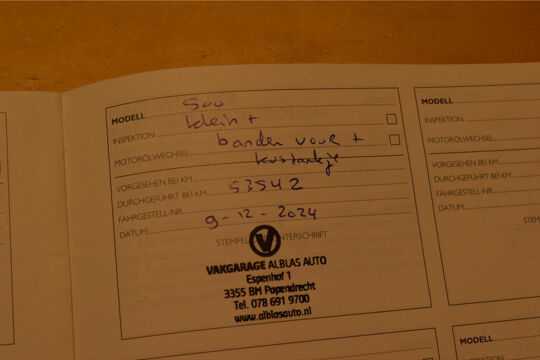 MODELL 500
INSPEKTION klein +
MOTORÖLWECHSEL banden voor +
VORGESEHEN BEI KM
DURCHGEFÜHRT BEI KM 53542
FAHRGESTELL-NR.
DATUM 9-12-2024
STEMPEL UNTERSCHRIFT
V
VAKGARAGE ALBLAS AUTO
Espenhof 1
3355 BM Papendrecht
Tel. 078 691 9700
www.alblasauto.nl
MODELL
INSPEKTION
MOTORÖLWECHSEL
VORGESEHEN BEI KM
DURCHGEFÜHRT BEI KM
FAHRGESTELL-NR.
DATUM
MODELL